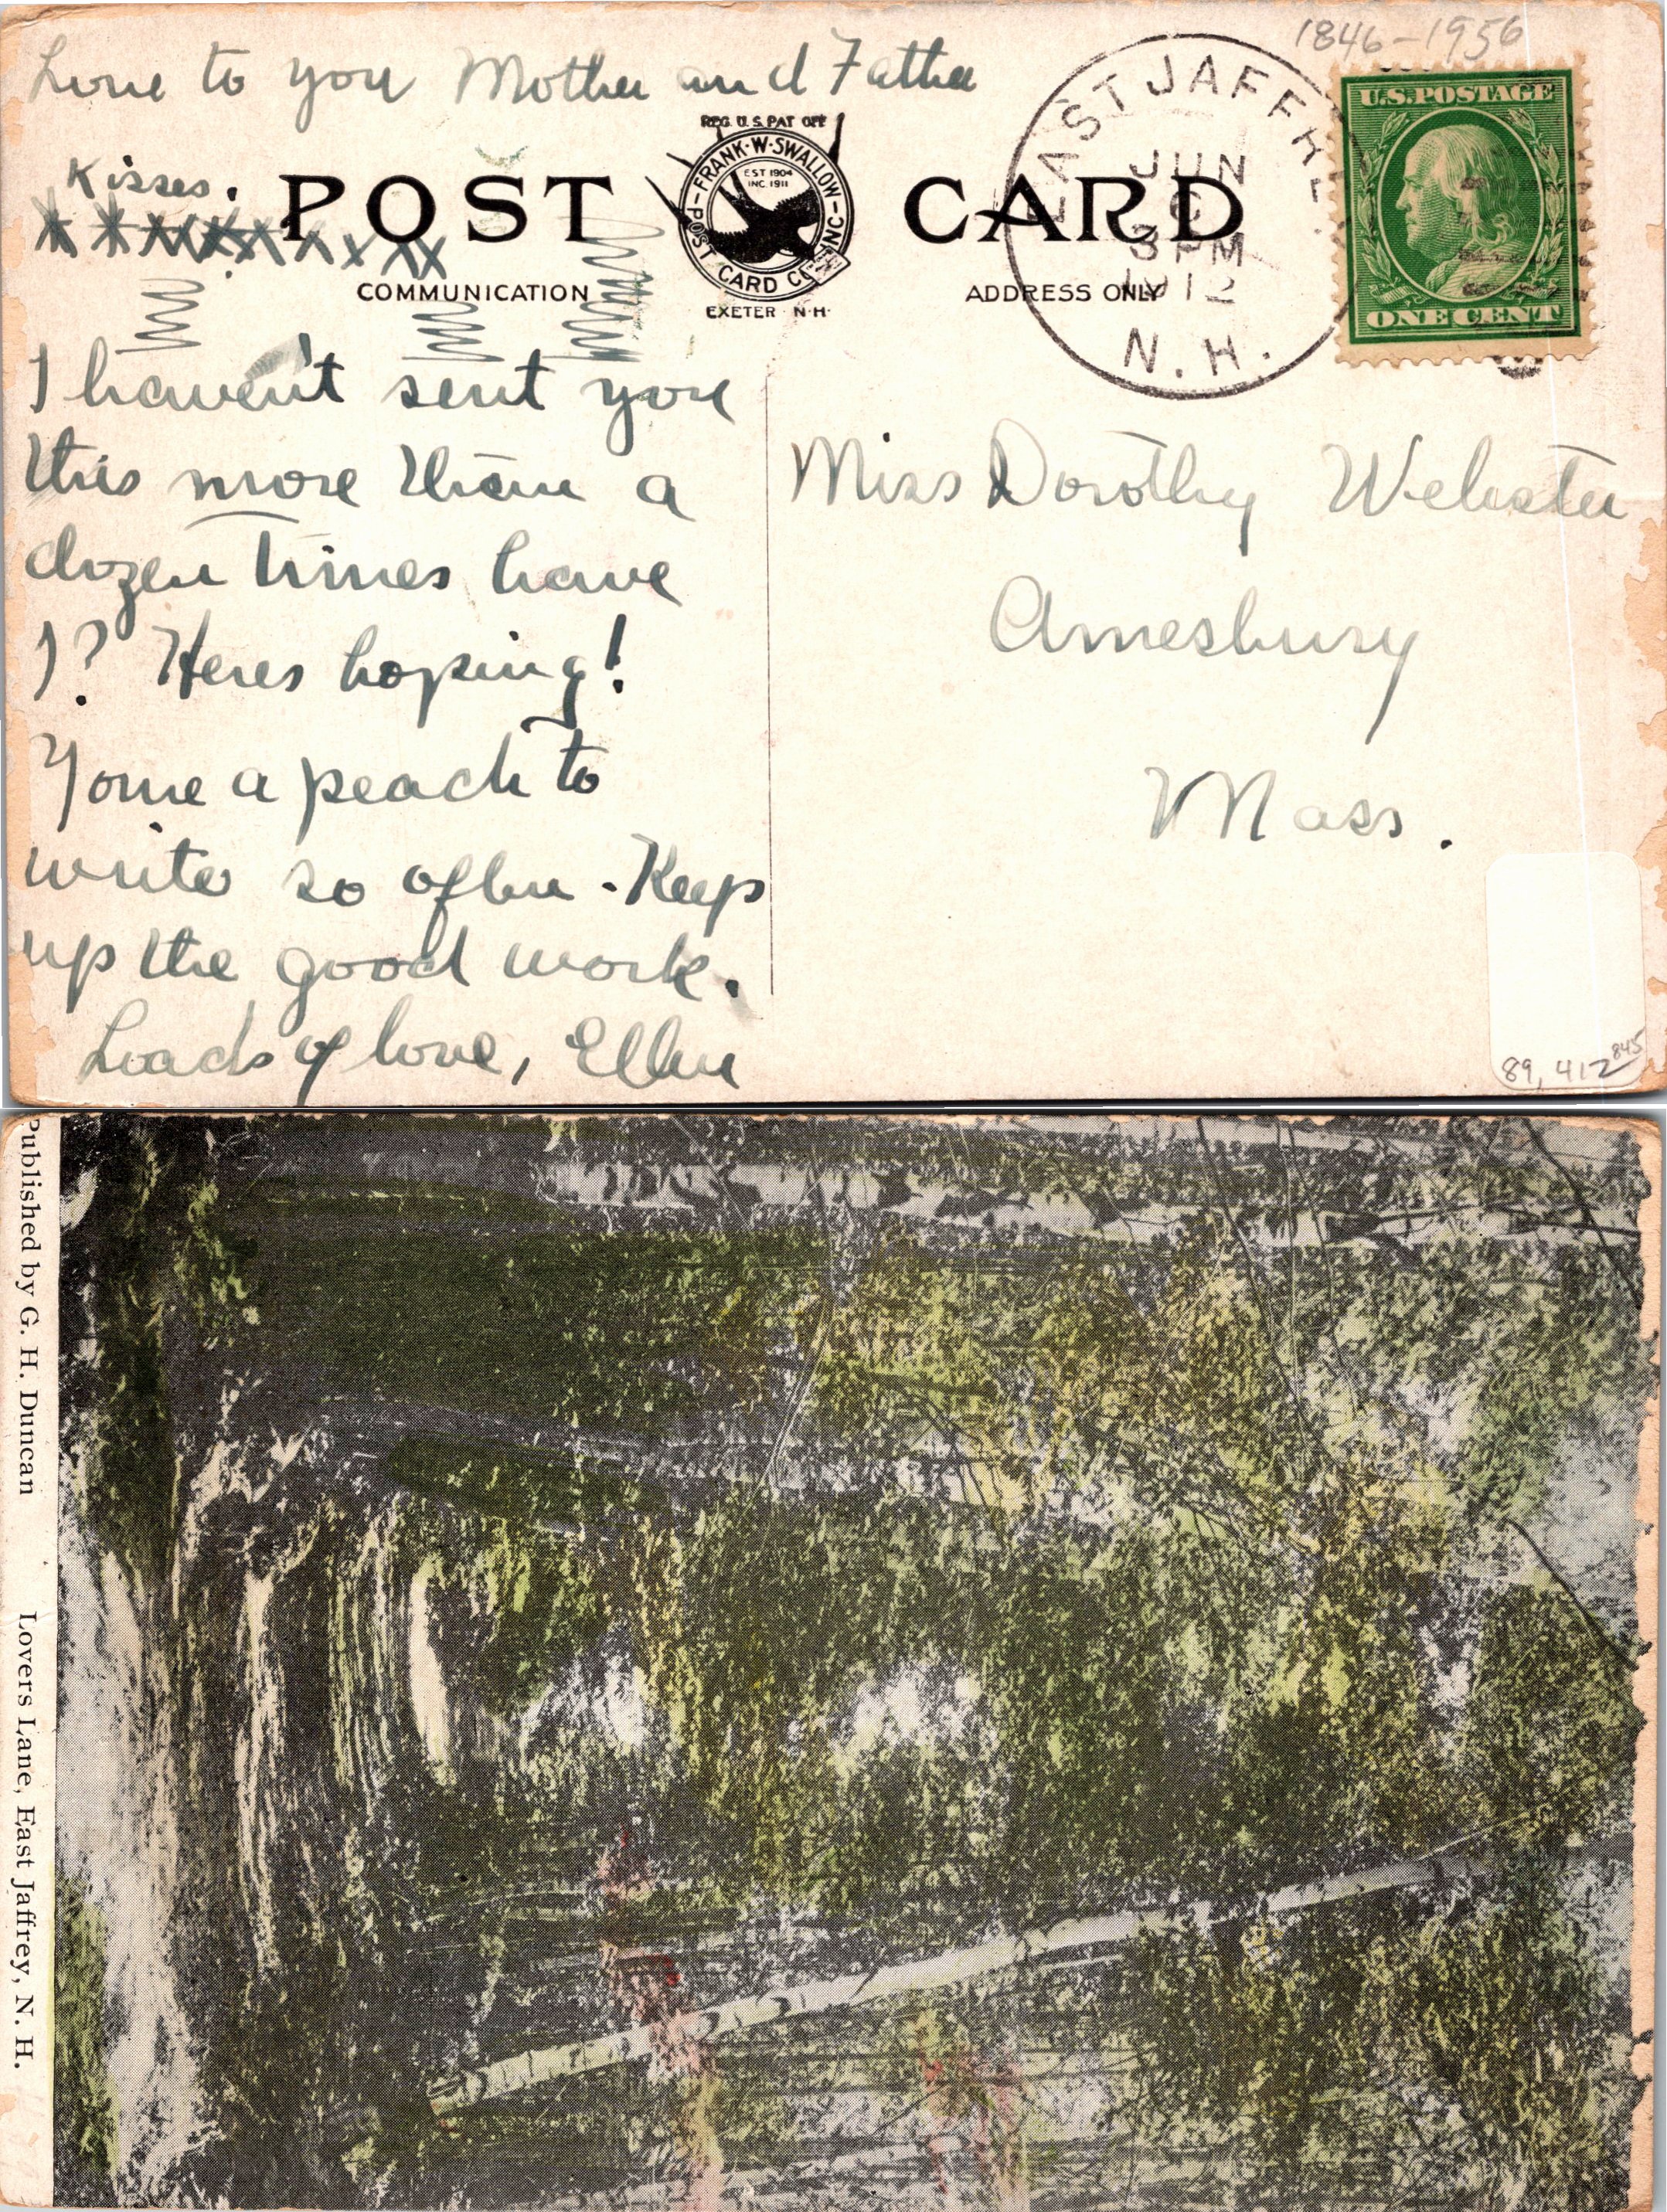 1846-1956
Love to you Mother and Father
Kisses.
X X X X X X X X X X
POST CARD
REG. U.S. PAT OFF
FRANK·W·SWALLOW
POST CARD CO. INC.
EST 1904
INC. 1911
EXETER N·H·
COMMUNICATION
ADDRESS ONLY
EAST JAFFRE
JUN
3 PM
1912
N.H.
U.S. POSTAGE
ONE CENT
I haven't sent you
this more than a
dozen times have
I? Heres hoping!
Your a peach to
write so often. Keep
up the good work.
Loads of love, Ellen
Miss Dorothy Webster
Amesbury
Mass.
89,412 845
Published by G. H. Duncan
Lovers Lane, East Jaffrey, N. H.